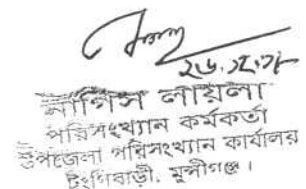 ২৬.১২.০৮
নার্গিস লায়লা
পরিসংখ্যান কর্মকর্তা
উপজেলা পরিসংখ্যান কার্যালয়
টংগিবাড়ী, মুন্সীগঞ্জ।